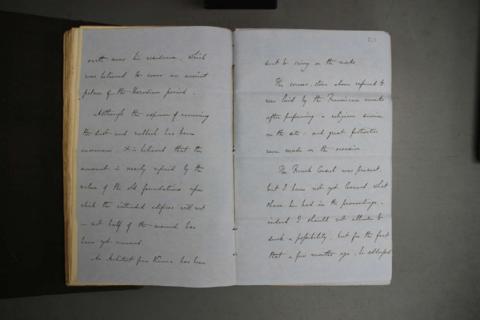 earth near his residence, which
was believed to cover an ancient
palace of the Herodian period.
Although the expense of removing
the dirt and rubbish has been
enormous, it is believed that the
amount is nearly repaid by the
value of the old foundations upon
which the intended edifice will rest
- not half of the mound has
been yet removed.
An Architect from Vienna has been
sent to carry on the works
The corner stone above referred to
was laid by the Franciscan monks
after performing a religious service
on the site - and great festivities
were made on the occasion.
The French Consul was present,
but I have not yet learned what
share he had in the proceedings -
indeed I should not allude to
such a possibility, but for the fact
that a few months ago, he alleged